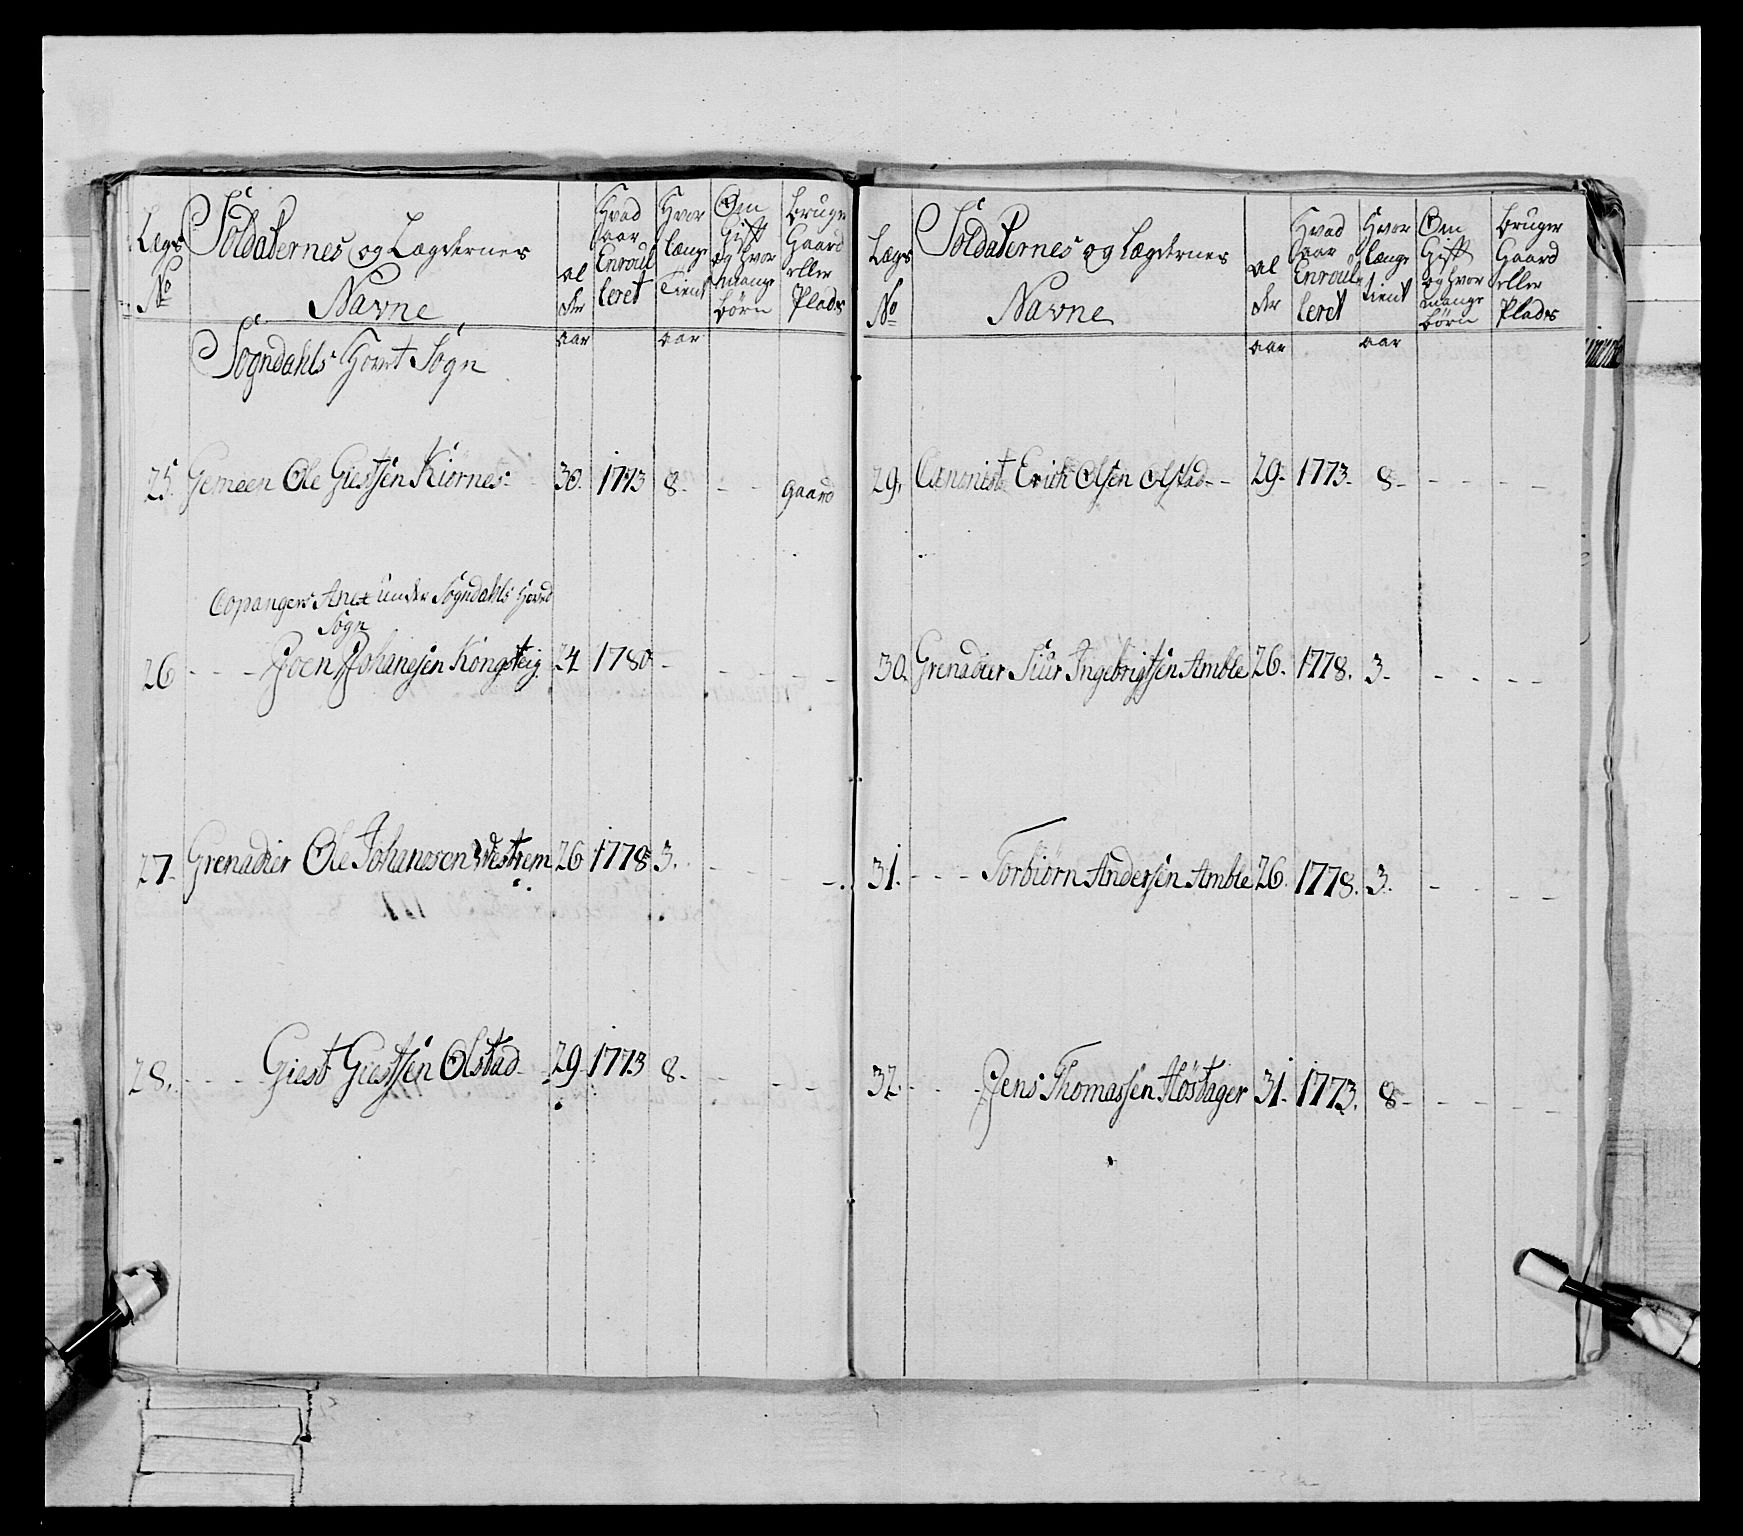 Lægs No
Soldaternes og Lægdernes Navne
Al der
Hvad aar Enroul leret
Hvor længe Tient
Om Gift og hvor mange børn
Bruger Gaard eller Plads
aar
aar
Sogndahls Hovet Sogn
25. Gemeen Ole Giestsen Kiørnes 30. 1773 8 - - Gaard
Copangers Anex under Sogndahls Hoved
Sogn
26 - - - Joen Johanesen Kongsteig 24 1780 - - - - -
27. Grenadier Ole Johanesen Westrem 26 1778 3. - - - -
28. - - - Giest Giestsen Olstad - 29 1773 8 - - - -
Lægs No
Soldaternes og Lægdernes Navne
Al der
Hvad aar Enroul leret
Hvor længe tient
Om Gift og hvor mange børn
Bruger Gaard eller Plads
aar
aar
29. Erich Olsen Olstad - - 29. 1773. 8 - - - - -
30. Grenadier Siur Ingebrigtsen Amble 26. 1778. 3. - - - -
31. - - - Torbiørn Andersen Amble 26. 1778. 3. - - - -
32. - - - Jens Thomassen Høstager 31. 1773. 8 - - - - -